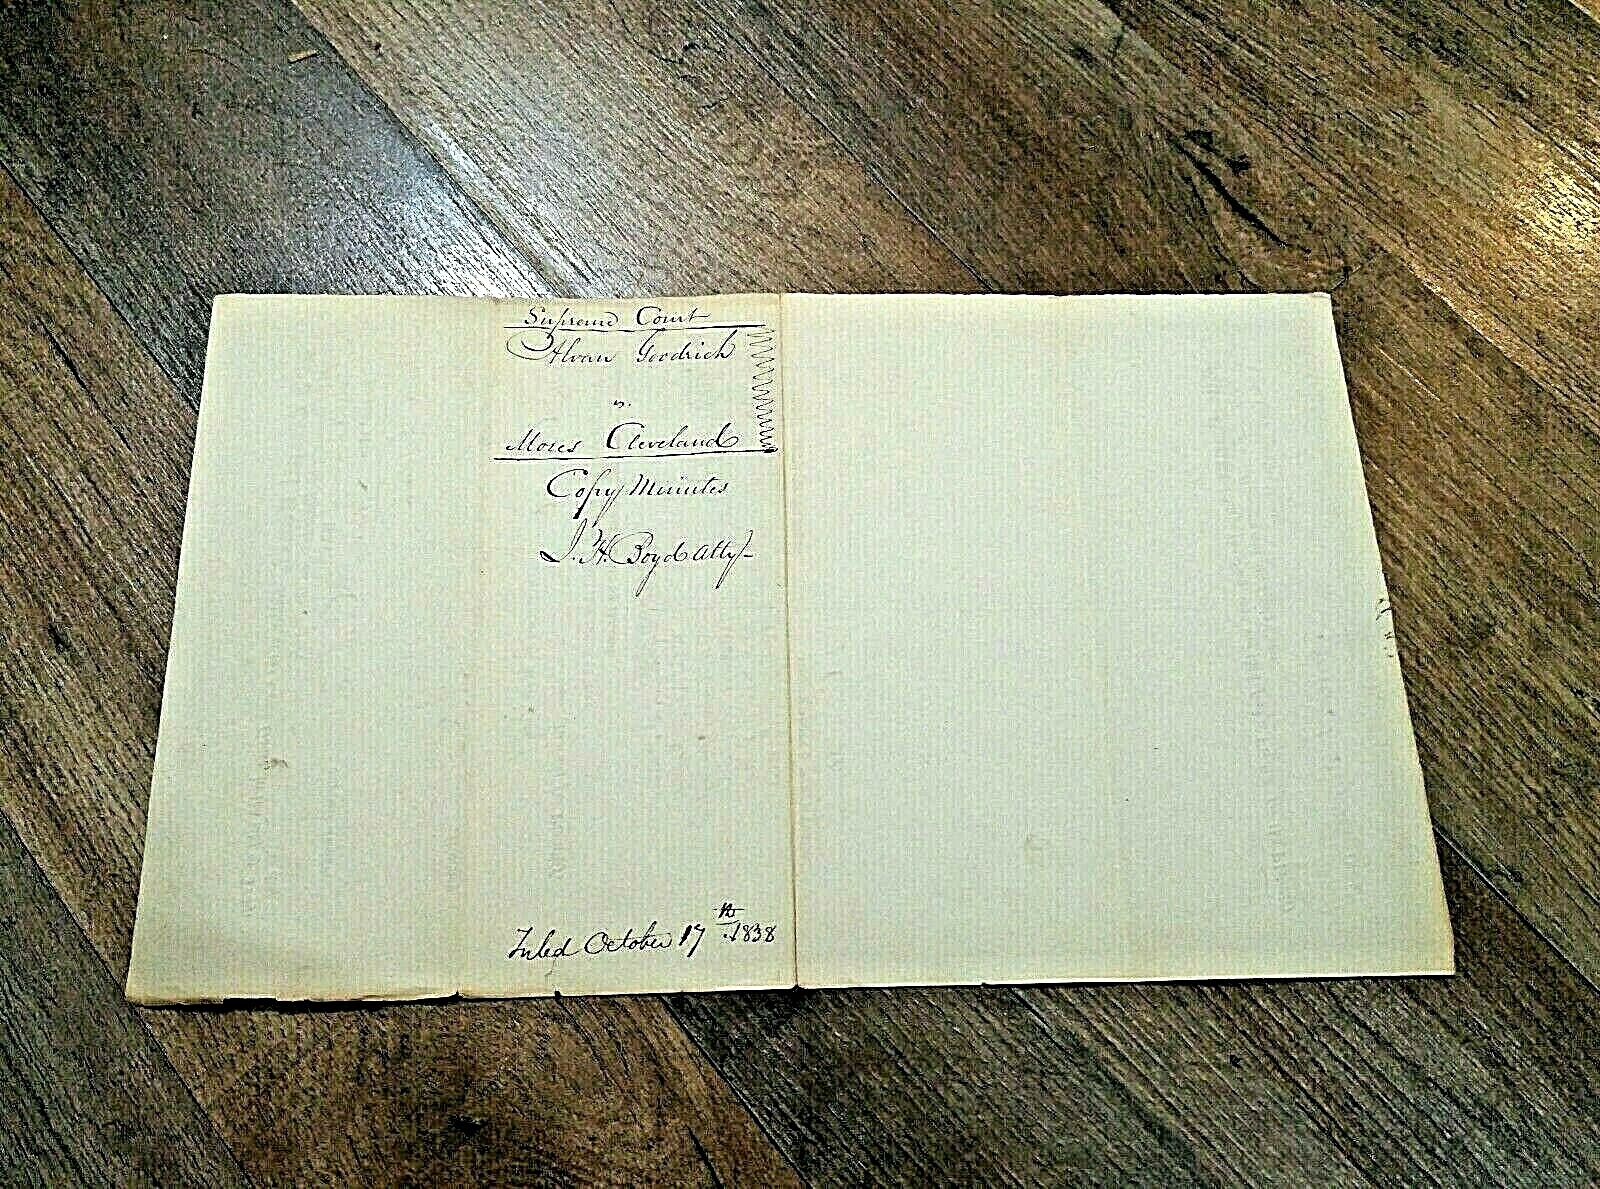 Supreme Court
Alvan Goodrich
vs.
Moses Cleveland
Copy Minutes
J. H. Boyd Atty
Filed October 17th 1838